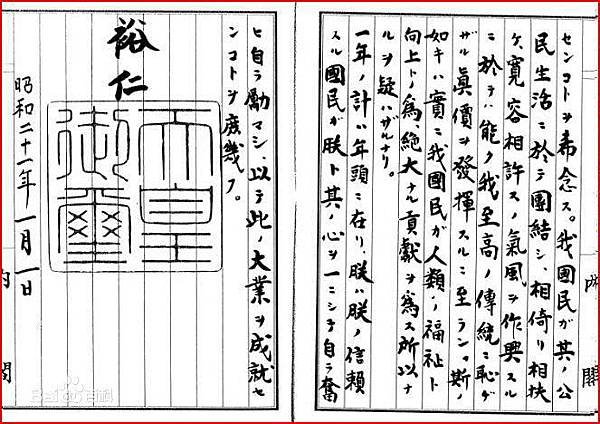 内閣
センコトヲ希念ス。我國民ガ其ノ公
民生活ニ於テ團結シ、相倚リ相扶
ケ、寛容相許スノ氣風ヲ作興スル
ニ於テハ能ク我至高ノ傳統ニ恥ヂ
ザル眞價ヲ發揮スルニ至ラン。斯ノ
如キハ實ニ我國民ガ人類ノ福祉ト
向上トノ為、絶大ナル貢獻ヲ為ス所以ナ
ルヲ疑ハザルナリ。
一年ノ計ハ年頭ニ在リ、朕ハ朕ノ信頼
スル國民ガ朕ト其ノ心ヲ一ニシテ自ラ奮
ヒ自ラ勵マシ、以テ此ノ大業ヲ成就セ
ンコトヲ庶幾フ。
裕仁
天皇
御璽
昭和二十一年一月一日
内閣
Baidu百科